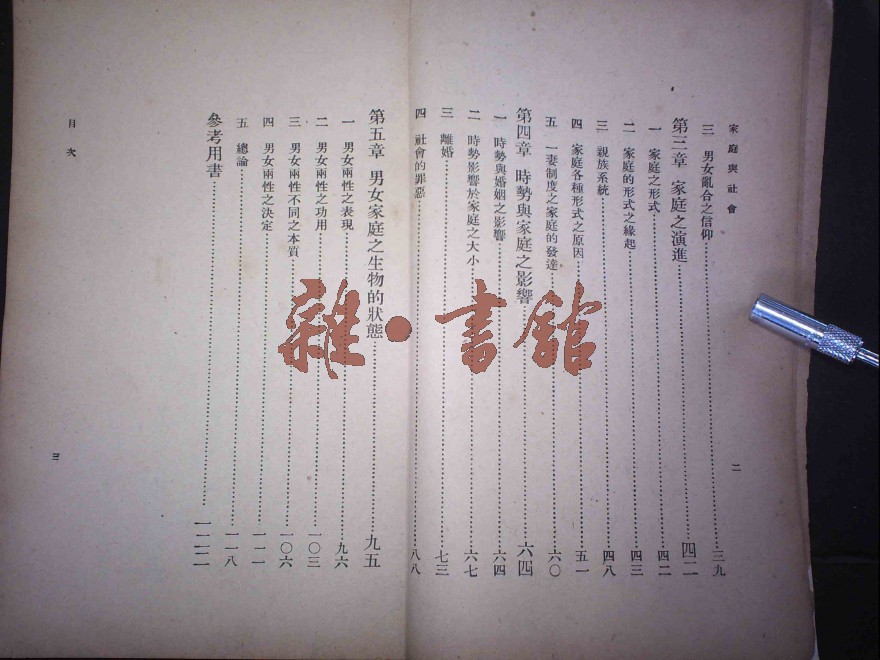 家庭與社會
二
三　男女亂合之信仰…………三九
第三章　家庭之演進…………四二
一　家庭之形式…………四二
二　家庭的形式之緣起…………四三
三　親族系統…………四八
四　家庭各種形式之原因…………五一
五　一妻制度之家庭的發達…………六〇
第四章　時勢與家庭之影響…………六四
一　時勢與婚姻之影響…………六四
二　時勢影響於家庭之大小…………六七
三　離婚…………七三
四　社會的罪惡…………八八
第五章　男女家庭之生物的狀態…………九五
一　男女兩性之表現…………九六
二　男女兩性之功用…………一〇三
三　男女兩性不同之本質…………一〇六
四　男女兩性之決定…………一一一
五　總論…………一一八
參考用書…………一二二
目次
三
雜·書館